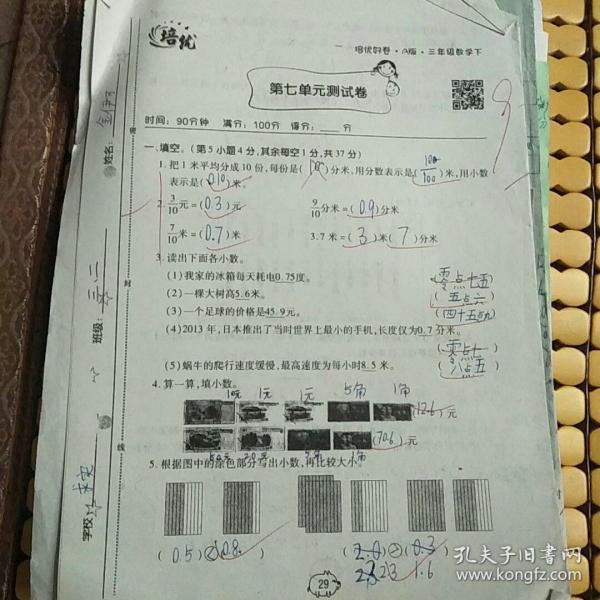 培优
培优好卷·A版·三年级数学下
第七单元测试卷
时间：90分钟 满分：100分 得分：____分
一、填空。(第5小题4分,其余每空1分,共37分)
1. 把1米平均分成10份,每份是( )分米,用分数表示是( 100/100 )米,用小数
表示是(0.10)米。
2. 3/10元=(0.3)元 9/10分米=(0.9)分米
7/10米=(0.7)米 3.7米=(3)米(7)分米
3. 读出下面各小数。
(1)我家的冰箱每天耗电0.75度。 (零点七五)
(2)一棵大树高5.6米。 (五点六)
(3)一个足球的价格是45.9元。 (四十五点九)
(4)2013年,日本推出了当时世界上最小的手机,长度仅为0.7分米。
(零点七)
(5)蜗牛的爬行速度缓慢,最高速度为每小时8.5米。 (八点五)
4. 算一算,填小数。
10元 1元 1元 5角 1角
(12.6)元
50元 20元 5角 1角
(70.6)元
5. 根据图中的涂色部分写出小数,再比较大小。
(0.5) (0.8) (2.0) (0.3)
2.3 1.6
29
学校
班级：三二
姓名：
密
封
线
孔夫子旧书网